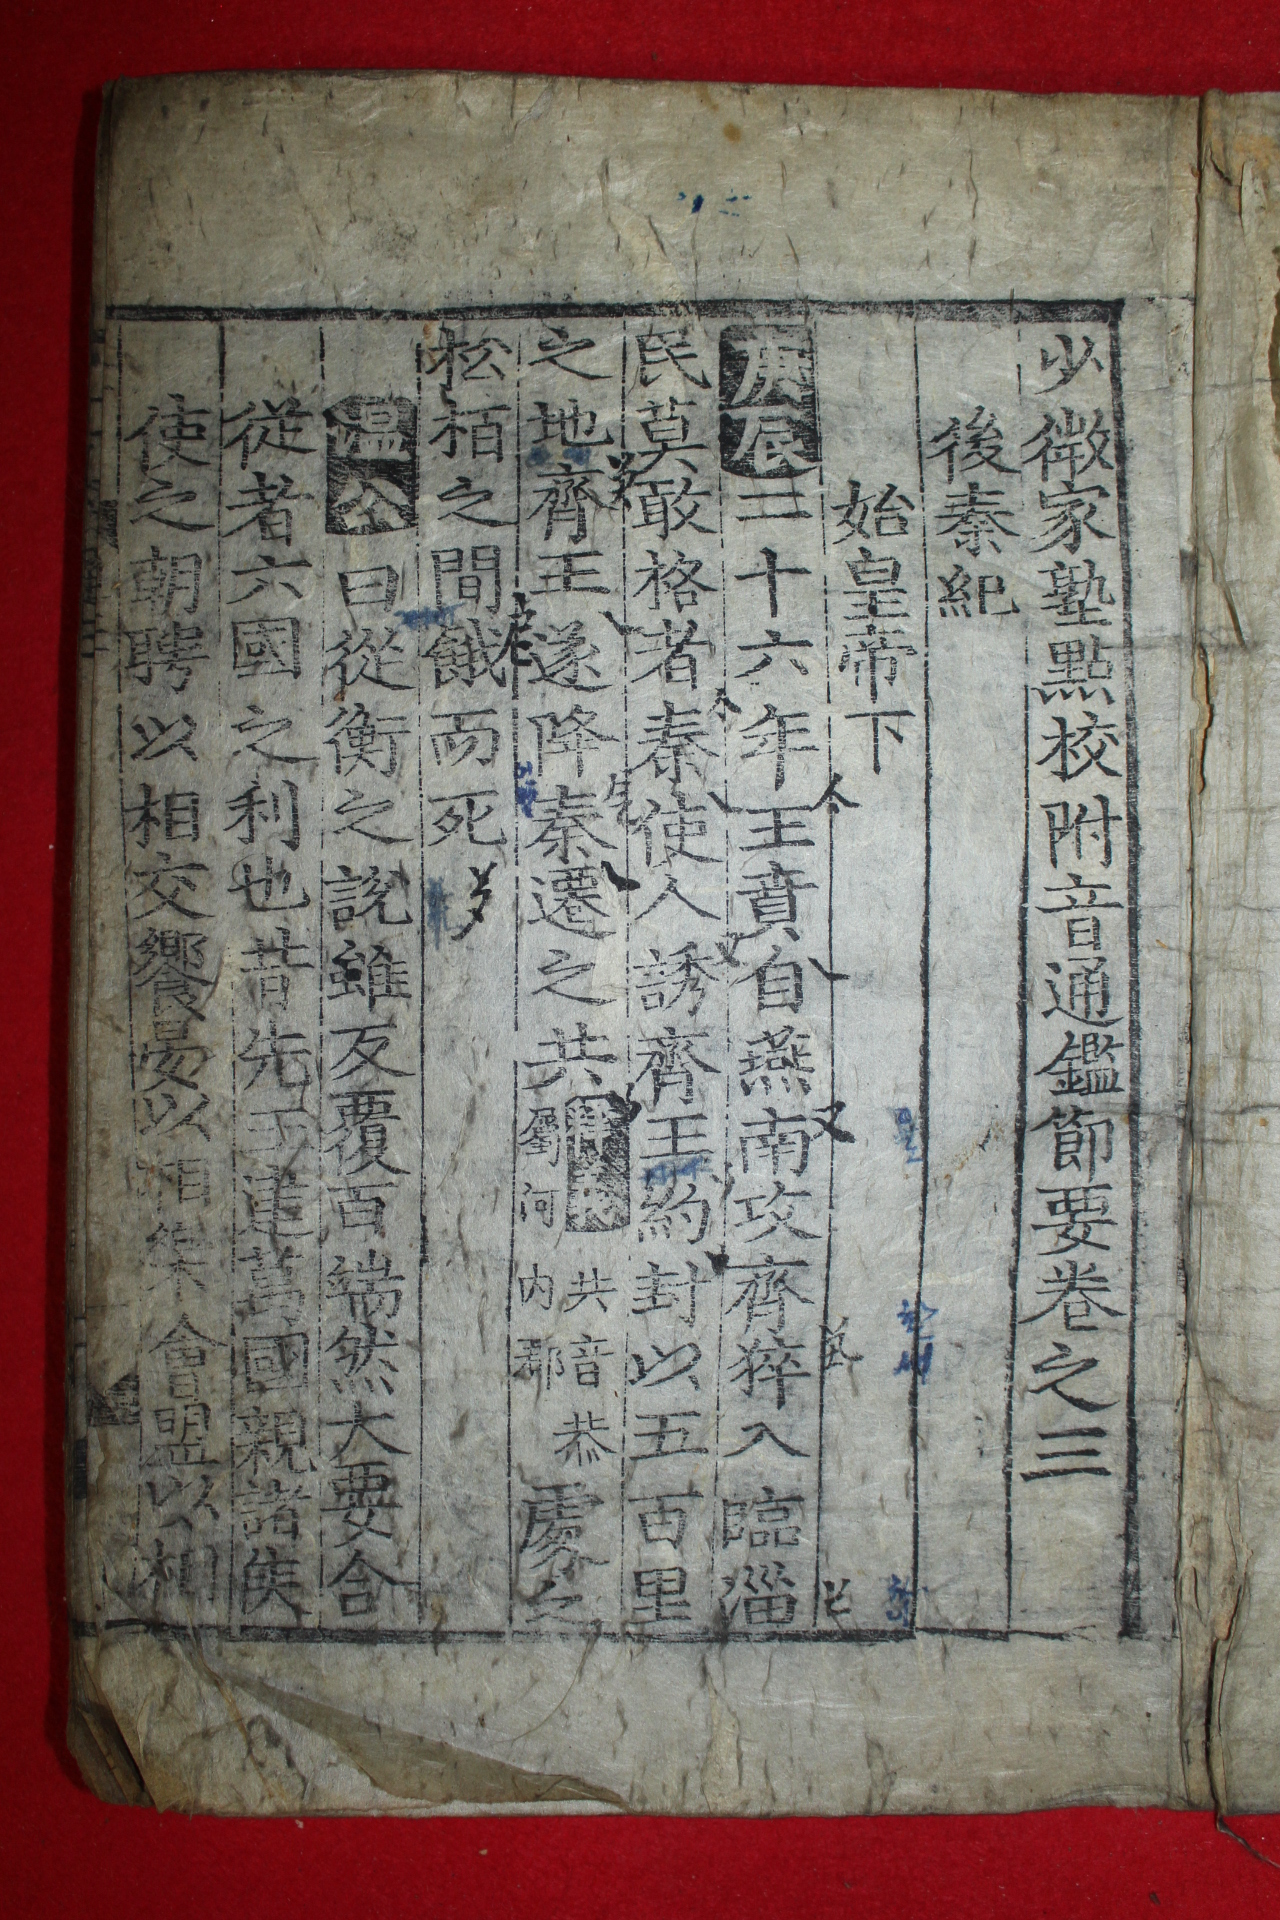 少微家塾點校附音通鑑節要卷之三
後秦紀
始皇帝下
庚辰二十六年王賁自燕南攻齊猝入臨淄
民莫敢格者秦使人誘齊王約封以五百里
之地齊王遂降秦遷之共
共音恭
屬河内郡
處之
松栢之間餓而死
溫公曰從衡之說雖反覆百端然大要合
從者六國之利也昔先王建萬國親諸侯
使之朝聘以相交饗宴以相樂會盟以相